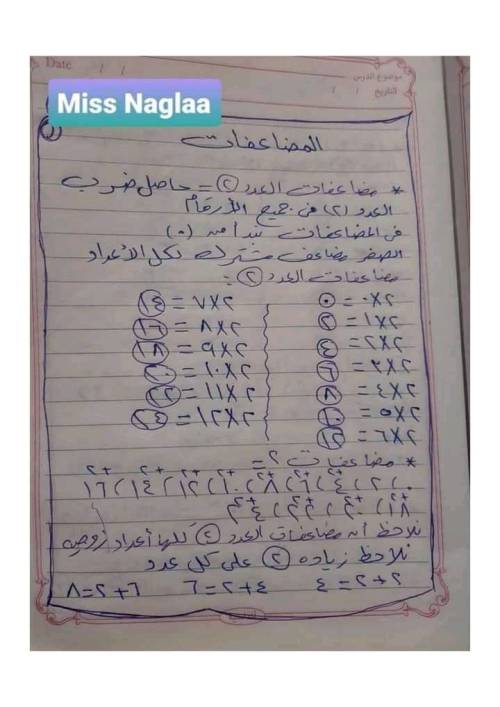 Date / /
موضوع الدرس
التاريخ / /
Miss Naglaa
المضاعفات
* مضاعفات العدد ٢ = حاصل ضرب
العدد (٢) فى جميع الأرقام
فى المضاعفات نبدأ من (٠)
الصفر مضاعف مشترك لكل الأعداد
مضاعفات العدد ٢ :
٢×٠ = ٠
٢×١ = ٢
٢×٢ = ٤
٢×٣ = ٦
٢×٤ = ٨
٢×٥ = ١٠
٢×٦ = ١٢
٢×٧ = ١٤
٢×٨ = ١٦
٢×٩ = ١٨
٢×١٠ = ٢٠
٢×١١ = ٢٢
٢×١٢ = ٢٤
* مضاعفات ٢ =
+٢ +٢ +٢ +٢ +٢ +٢ +٢
٠، ٢، ٤، ٦، ٨، ١٠، ١٢، ١٤، ١٦
١٨، ٢٠، ٢٢، ٢٤
نلاحظ أن مضاعفات العدد ٢ كلها أعداد زوجيه
نلاحظ زياده ٢ على كل عدد
٢+٢=٤ ٤+٢=٦ ٦+٢=٨